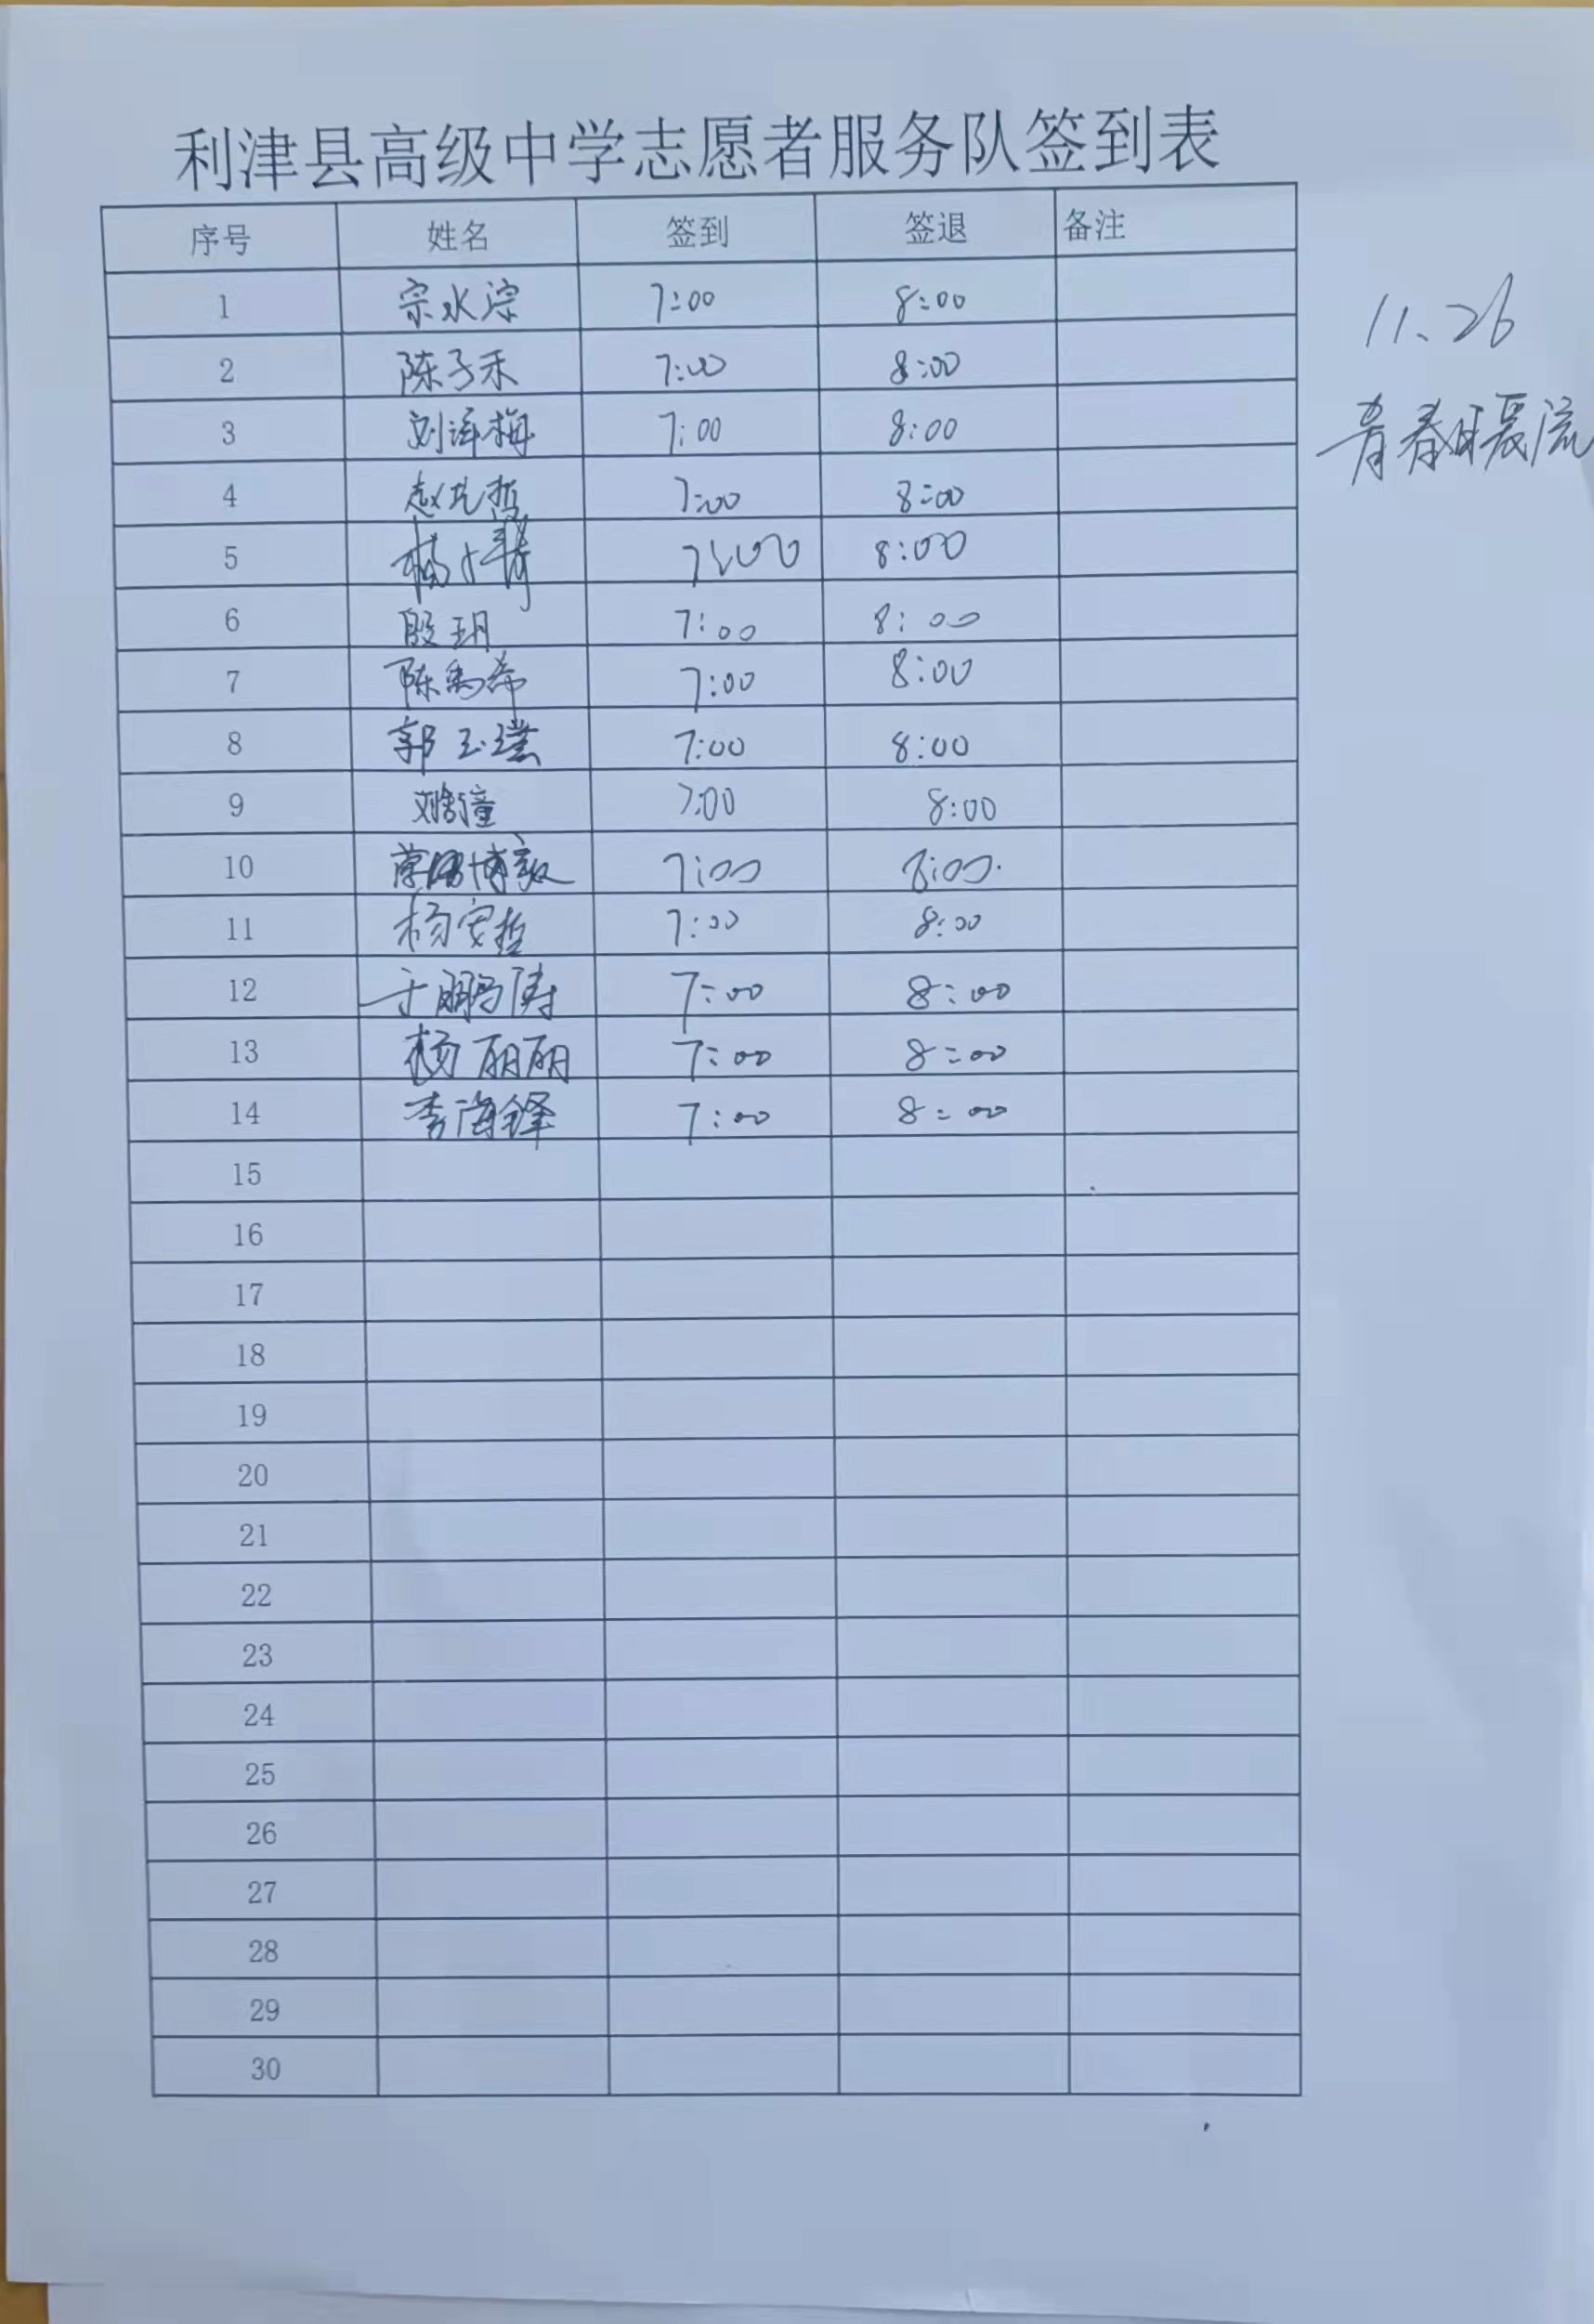 利津县高级中学志愿者服务队签到表
序号 姓名 签到 签退 备注
1 宗水淙 7:00 8:00
2 陈子禾 7:00 8:00
3 刘译梅 7:00 8:00
4 赵 哲 7:00 8:00
5 杨 7:00 8:00
6 殷玥 7:00 8:00
7 陈禹希 7:00 8:00
8 郭玉璞 7:00 8:00
9 刘 潼 7:00 8:00
10 博 7:00 8:00
11 杨宏哲 7:00 8:00
12 于鹏涛 7:00 8:00
13 杨丽丽 7:00 8:00
14 李海锋 7:00 8:00
15
16
17
18
19
20
21
22
23
24
25
26
27
28
29
30
11、26
青春暖流